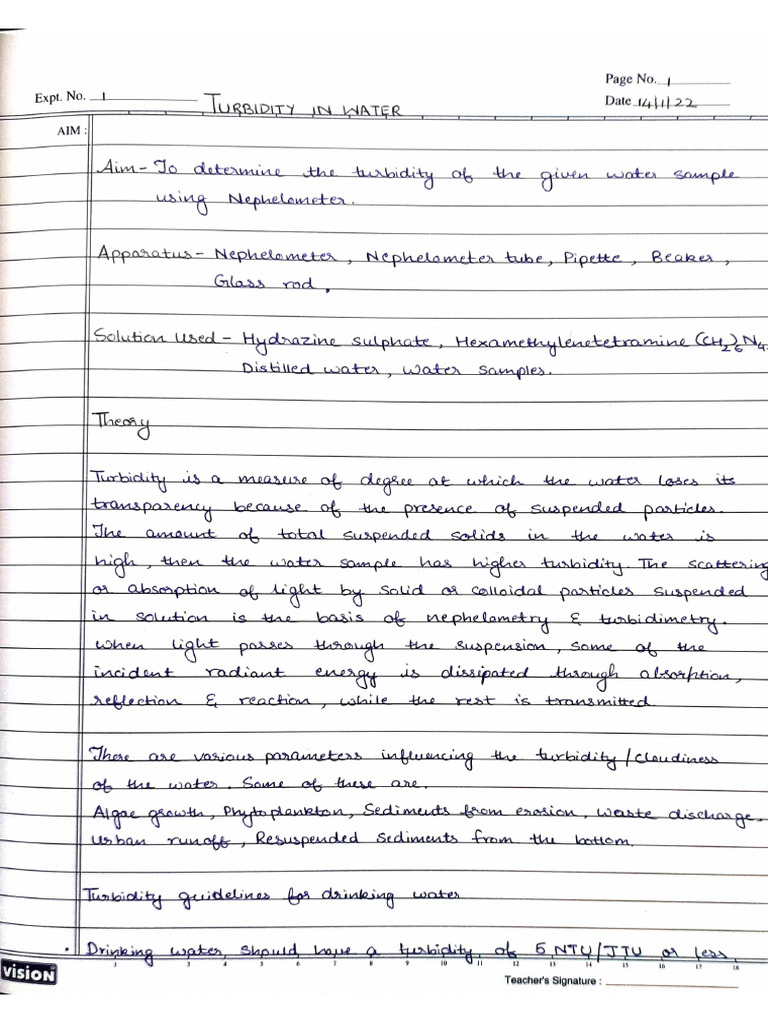 Page No. 1
Expt. No. 1
TURBIDITY IN WATER
Date 14/1/22
AIM :
Aim - To determine the turbidity of the given water sample
using Nephelometer.
Apparatus - Nephelometer, Nephelometer tube, Pipette, Beaker,
Glass rod.
Solution Used - Hydrazine sulphate, Hexamethylenetetramine (CH2)6N4.
Distilled water, water samples.
Theory
Turbidity is a measure of degree at which the water loses its
transparency because of the presence of suspended particles.
The amount of total suspended solids in the water is
high, then the water sample has higher turbidity. The scattering
or absorption of light by solid or colloidal particles suspended
in solution is the basis of nephelametry & turbidimetry.
When light passes through the suspension, some of the
incident radiant energy is dissipated through absorption,
reflection & reaction, while the rest is transmitted.
There are various parameters influencing the turbidity/cloudiness
of the water. Some of these are.
Algae growth, Phytoplankton, Sediments from erosion, waste discharge.
Urban runoff, Resuspended sediments from the bottom.
Turbidity guidelines for drinking water
• Drinking water, should have a turbidity of 5 NTU/JTU or less.
1 3 4 5 6 7 8 9 10 11 12 13 14 15 16 17 18
vision
Teacher's Signature :